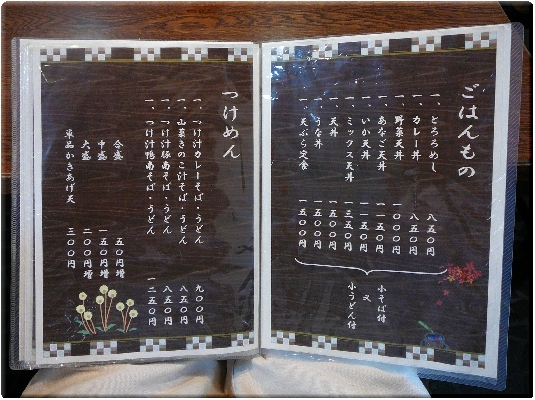 ごはんもの
一、とろろめし 八五〇円
一、カレー丼 八五〇円
一、野菜天丼 一〇〇〇円
一、あなご天丼 一一五〇円
一、いか天丼 一一五〇円
一、ミックス天丼 一三五〇円
一、天丼 一五〇〇円
一、うな丼 一五〇〇円
一、天ぷら定食 一五〇〇円
小そば付
又
小うどん付
つけめん
一、つけ汁カレーそば・うどん 九〇〇円
一、山菜きのこ汁そば・うどん 八五〇円
一、つけ汁豚南そば・うどん 八五〇円
一、つけ汁鴨南そば・うどん 一二五〇円
合盛 五〇円増
中盛 一五〇円増
大盛 二〇〇円増
単品かきあげ天 三〇〇円